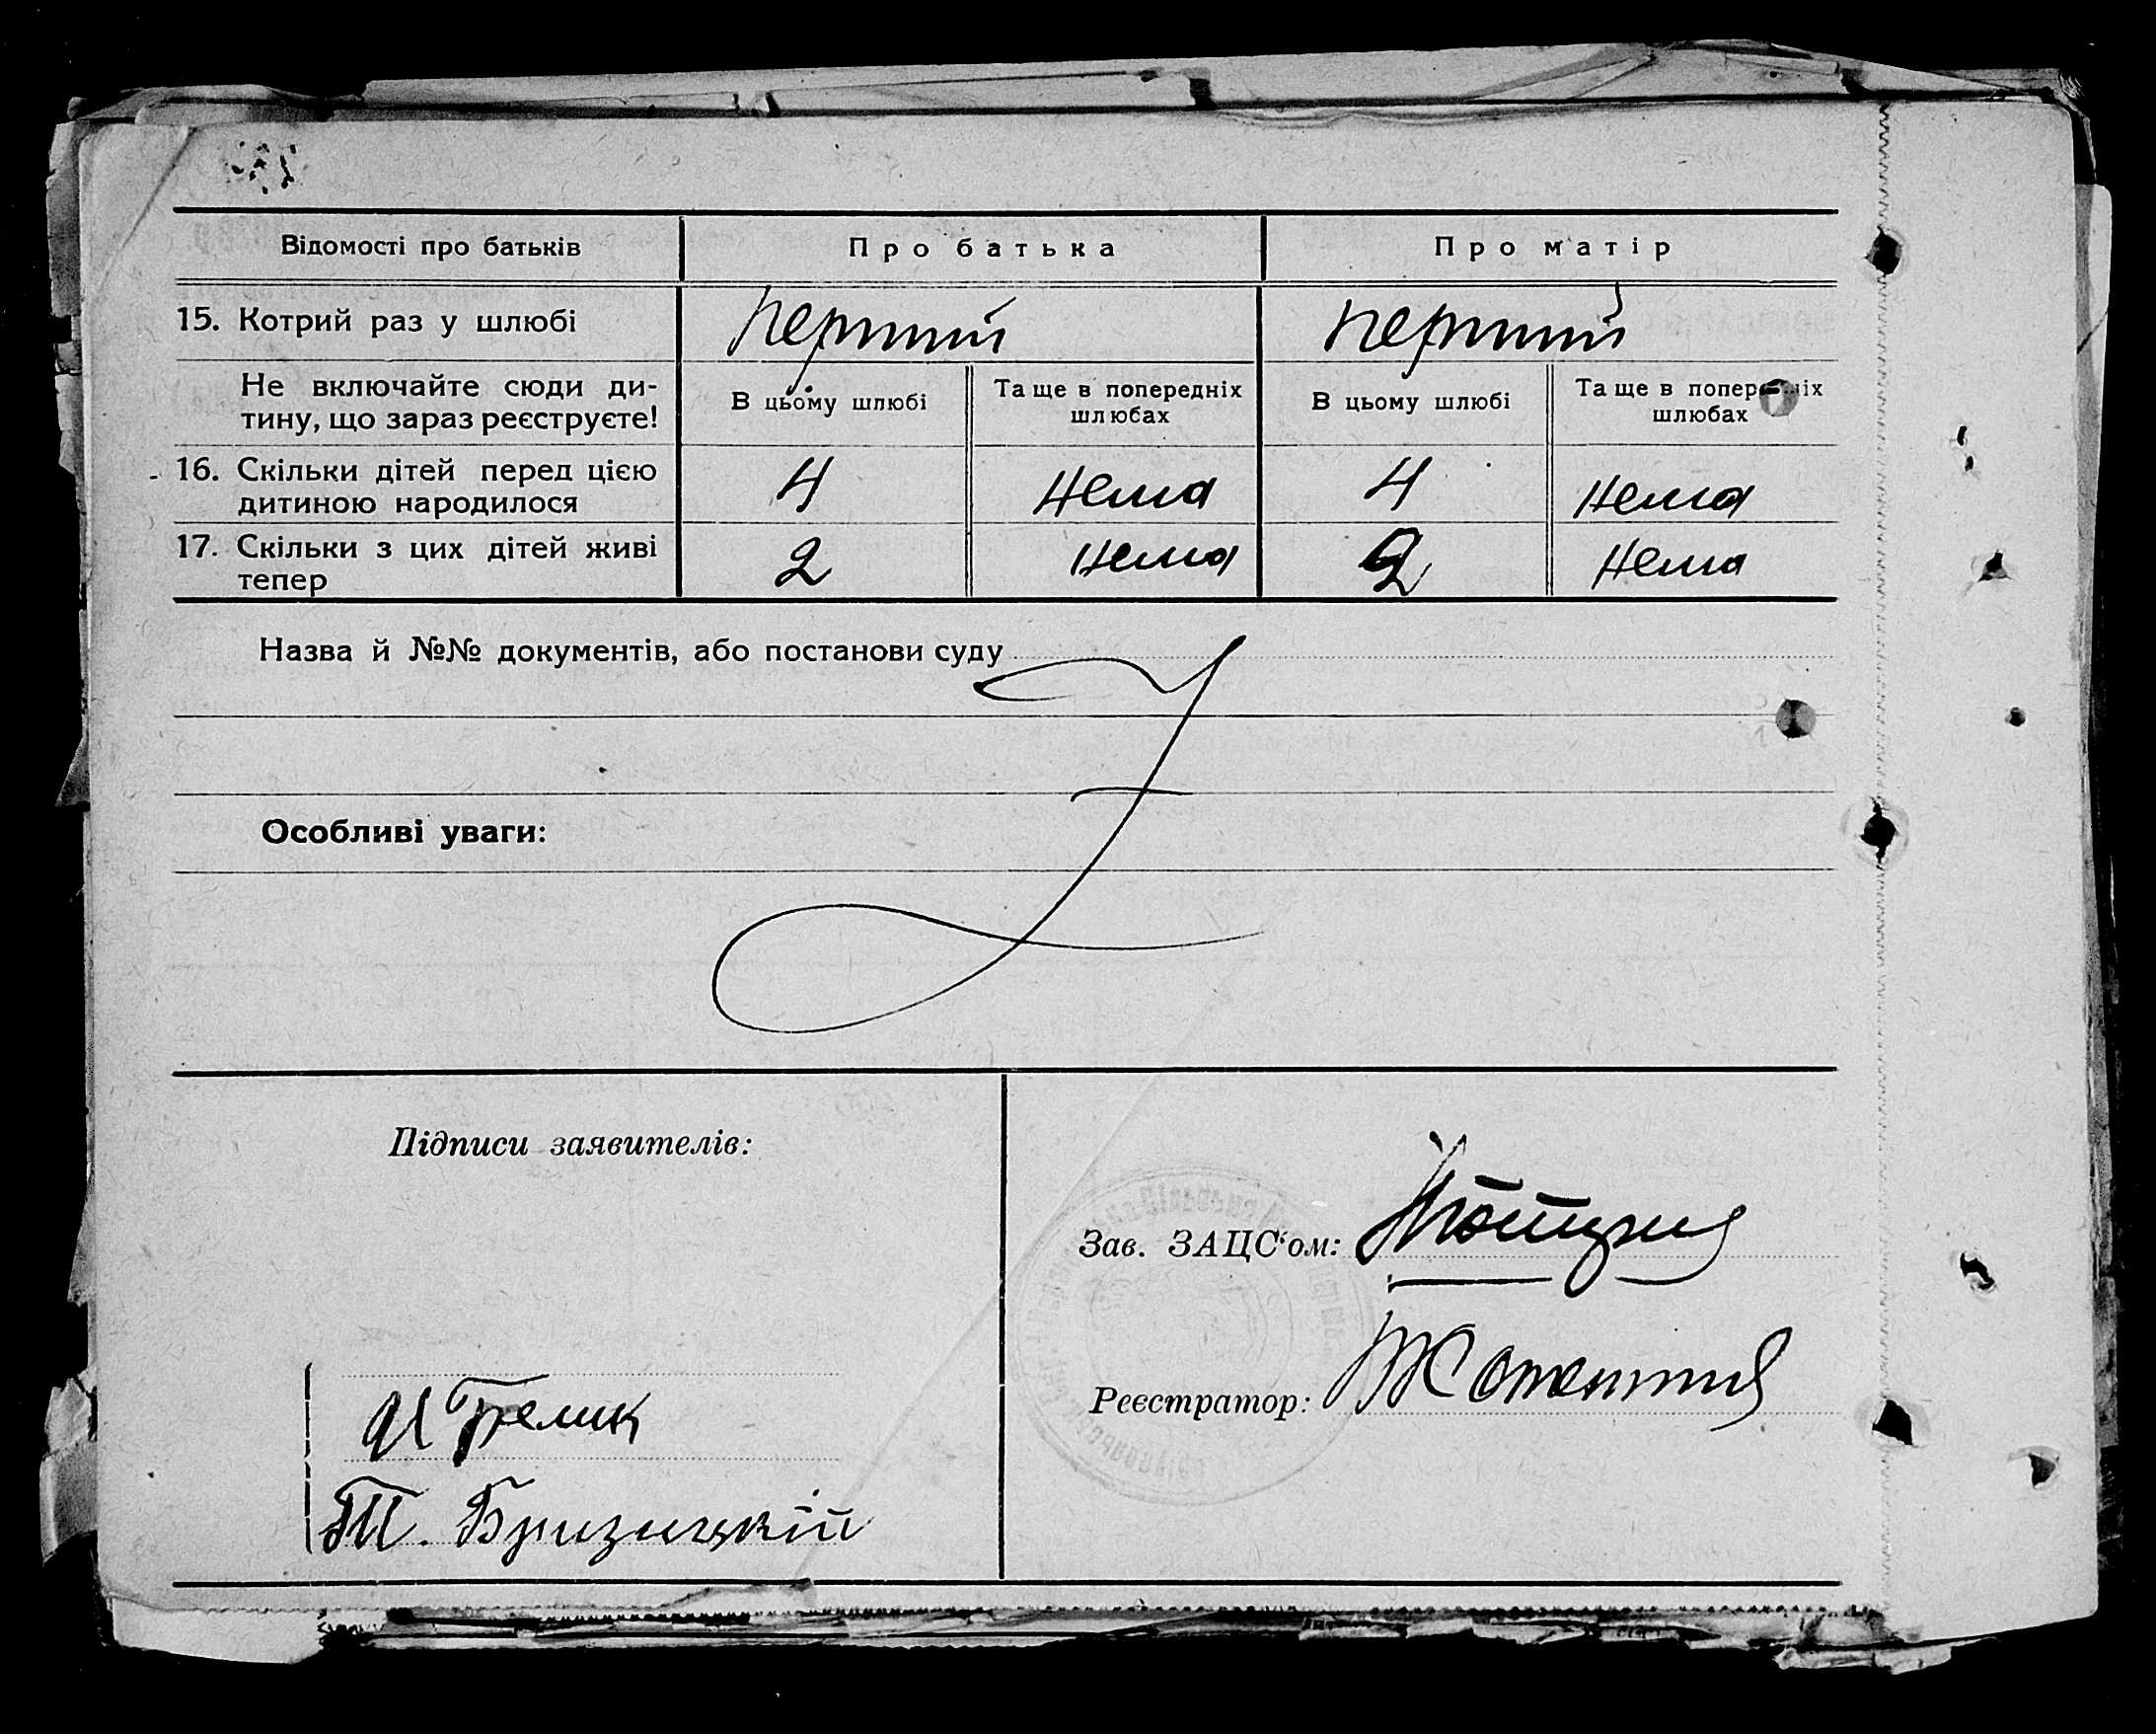 Відомості про батьків Про батька Про матір
15. Котрий раз у шлюбі перший перший
Не включайте сюди ди-
тину, що зараз реєструєте!
В цьому шлюбі
Та ще в попередніх
шлюбах
В цьому шлюбі
Та ще в попередніх
шлюбах
16. Скільки дітей перед цією
дитиною народилося
4 Нема 4 Нема
17. Скільки з цих дітей живі
тепер
2 Нема 2 Нема
Назва й №№ документів, або постанови суду
Особливі уваги:
Підписи заявителів:
Зав. ЗАЦС‘ом:
Реєстратор:
Т. Бризицкій